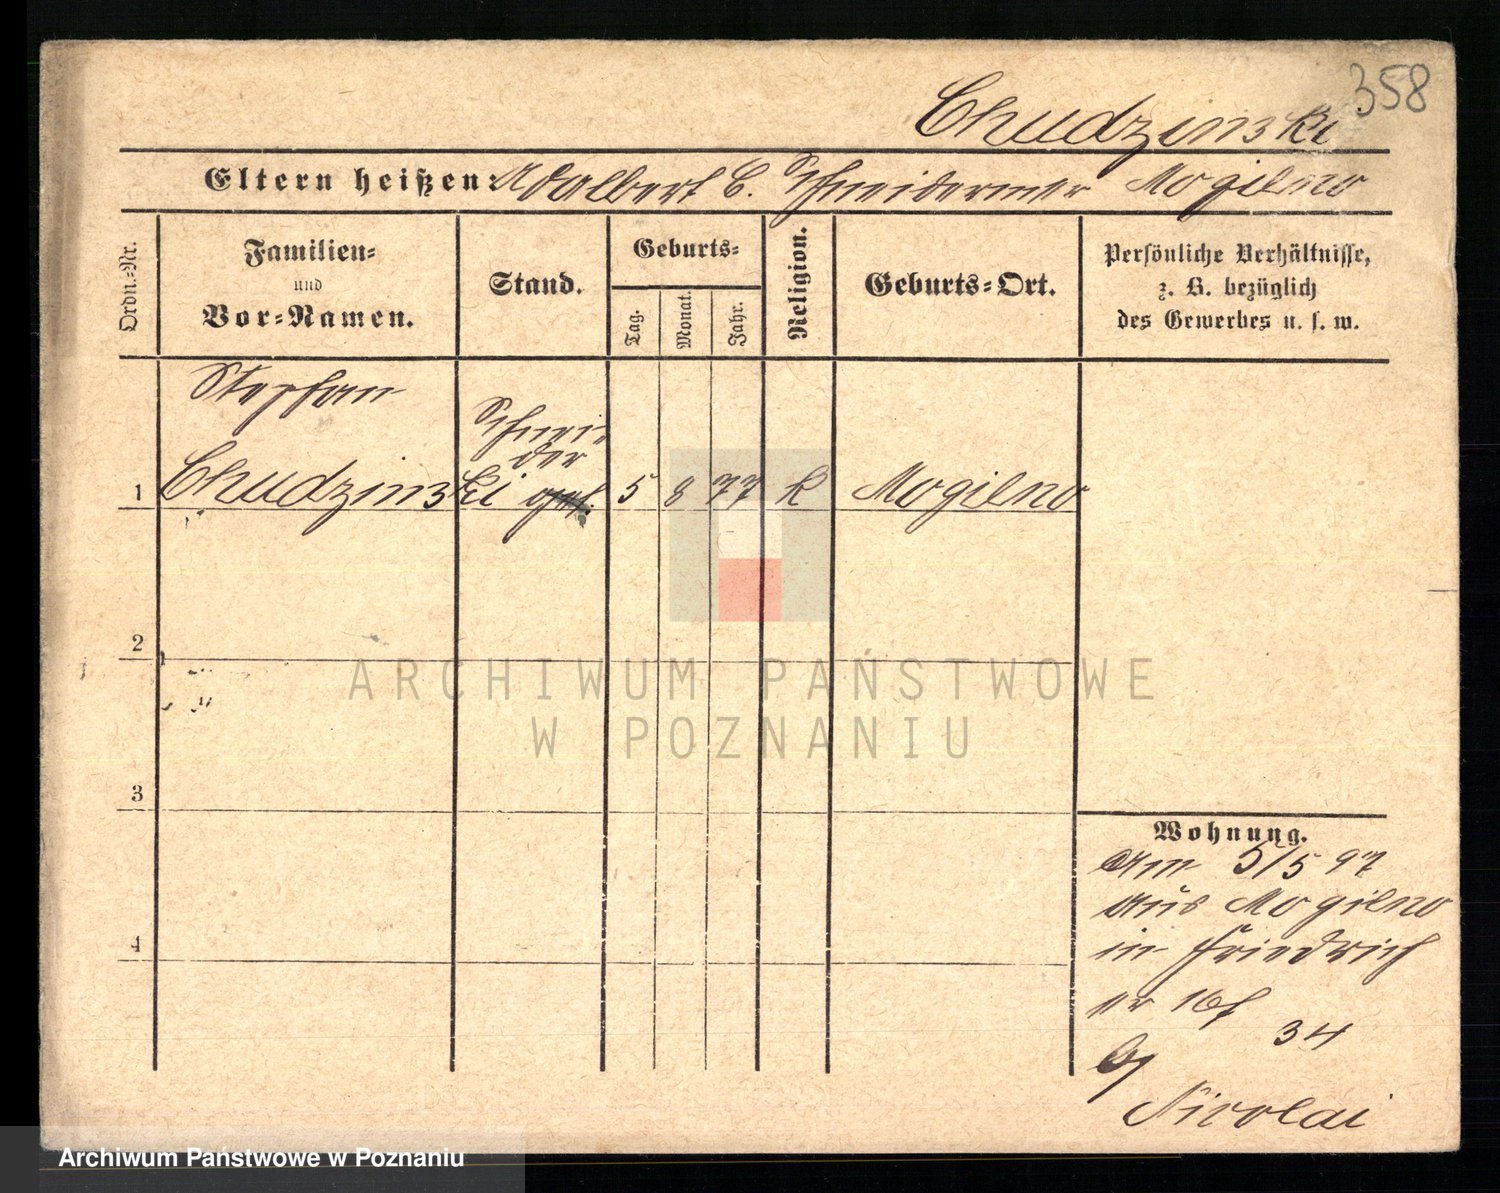 358
Chudzinski
Eltern heißen: Adalbert C. Schneidermstr Mogilno
Ordn.-Nr.
Familien-
und
Vor-Namen.
Stand.
Geburts-
Tag.
Monat.
Jahr.
Religion.
Geburts-Ort.
Persönliche Verhältnisse,
z. B. bezüglich
des Gewerbes u. s. w.
Stephan
Schnei-
der
1 Chudzinski 5 8 77 k Mogilno
2
3
4
Wohnung.
Am 5/5 97
aus Mogilno
in Friedrich
str
34
by
Nicolai
ARCHIWUM PAŃSTWOWE
W POZNANIU
Archiwum Państwowe w Poznaniu